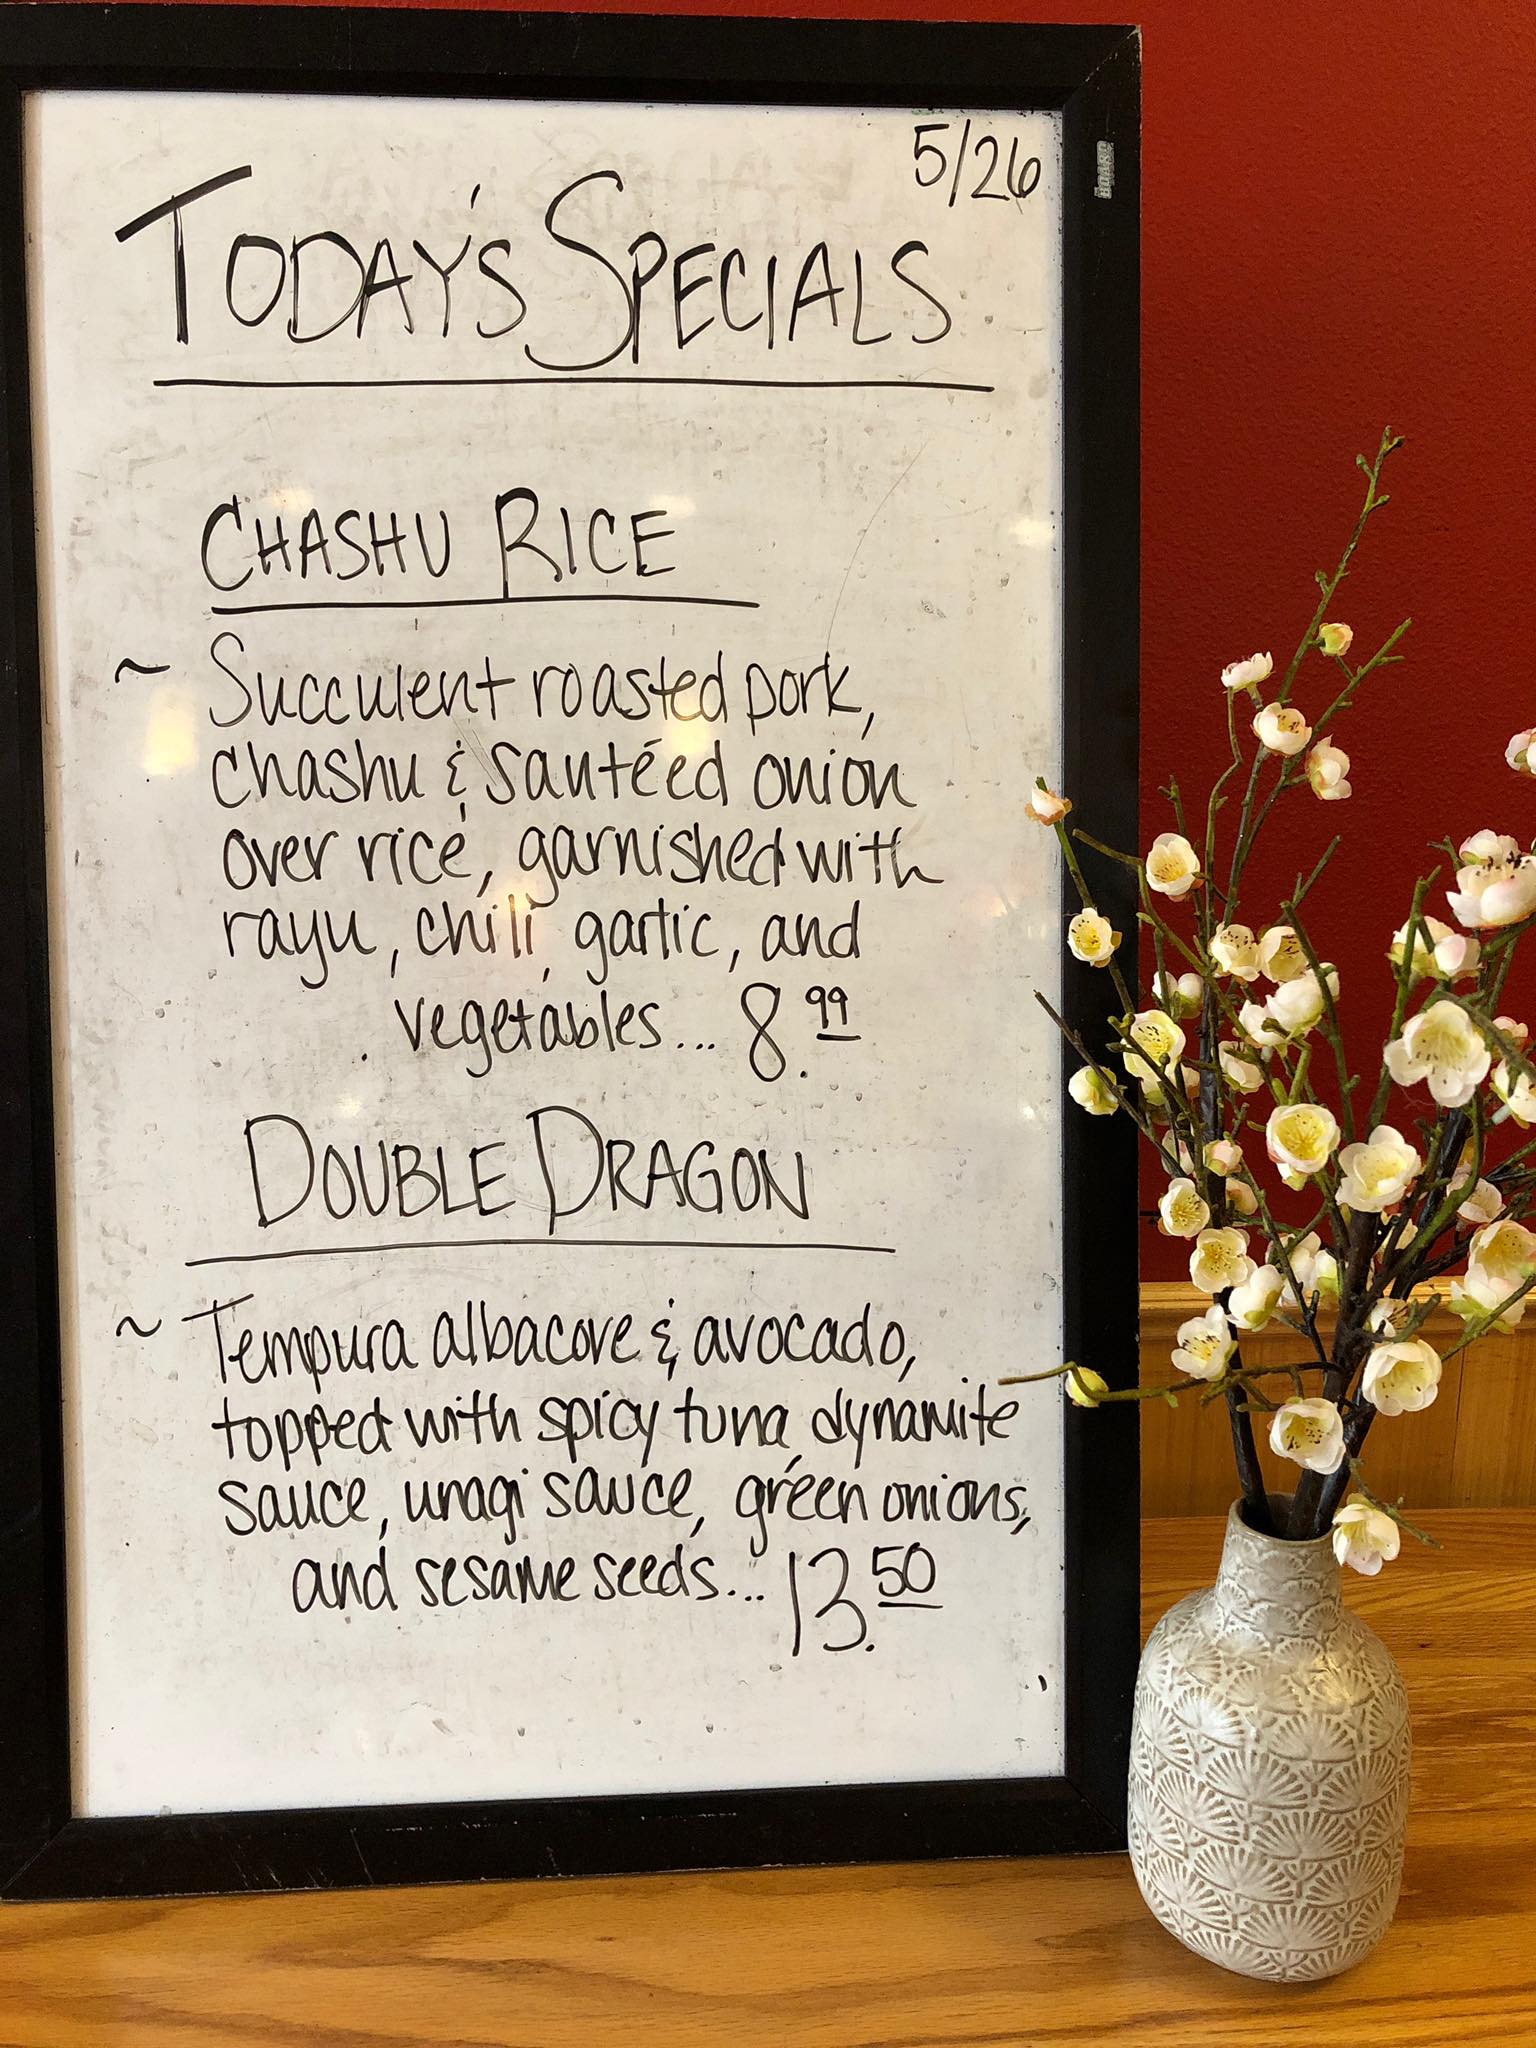 5/26
TODAY'S SPECIALS
CHASHU RICE
~ Succulent roasted pork,
chashu & sautéed onion
over rice, garnished with
rayu, chili, garlic, and
vegetables... 8.99
DOUBLE DRAGON
~ Tempura albacore & avocado,
topped with spicy tuna, dynamite
sauce, unagi sauce, green onions,
and sesame seeds... 13.50